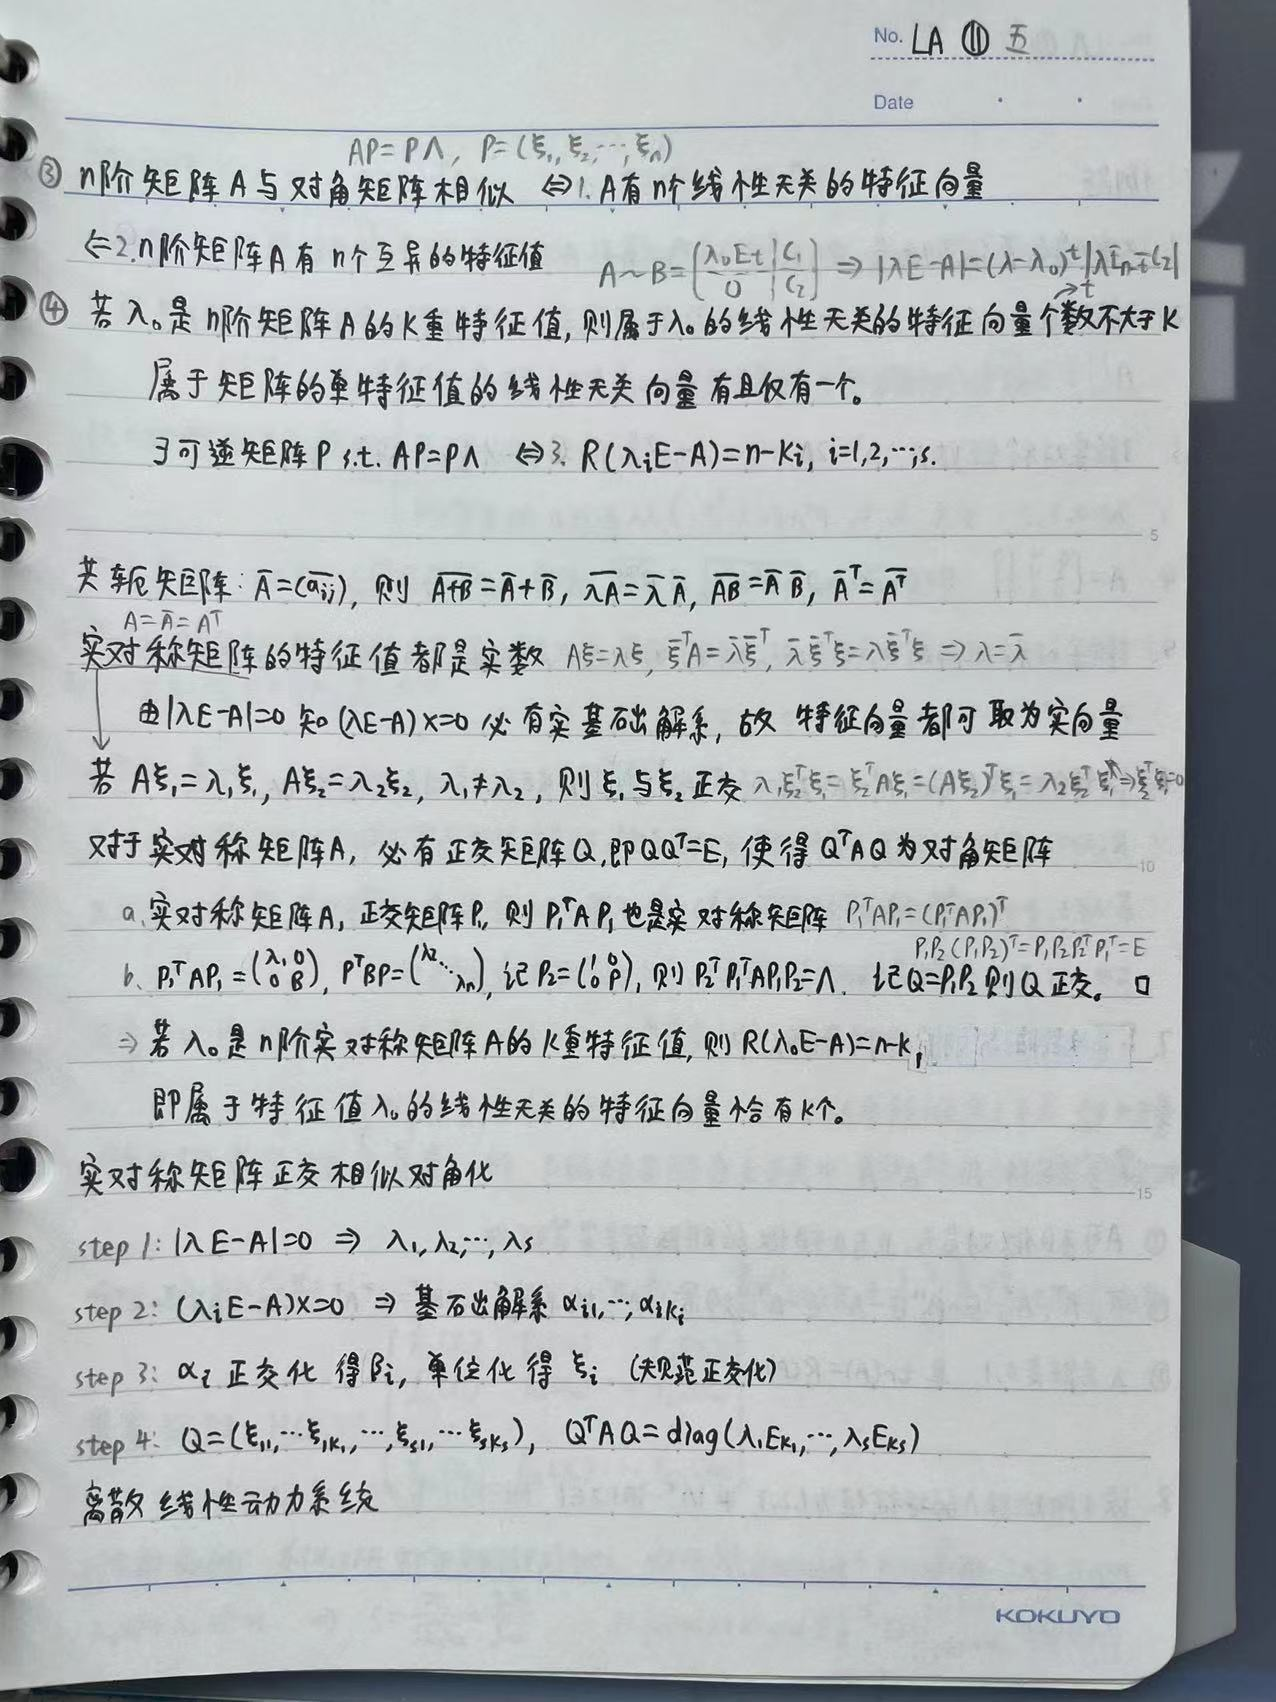 No. LA ⑪ 五
Date
AP=PΛ, P=(ξ₁,ξ₂,…,ξₙ)
③ n阶矩阵A与对角矩阵相似 ⇔1. A有n个线性无关的特征向量
⇐2. n阶矩阵A有n个互异的特征值 A~B=(λ₀Eₜ|C₁ / 0|C₂) ⇒ |λE-A|=(λ-λ₀)ᵗ|λEₙ₋ₜ-C₂|
→t
④ 若λ₀是n阶矩阵A的K重特征值,则属于λ₀的线性无关的特征向量个数不大于K
属于矩阵的单特征值的线性无关向量有且仅有一个。
∃可逆矩阵P s.t. AP=PΛ ⇔3. R(λᵢE-A)=n-Kᵢ, i=1,2,…,s.
5
共轭矩阵: A̅=(a̅ᵢⱼ), 则 A̅+̅B̅=A̅+B̅, λ̅A̅=λ̅ A̅, A̅B̅=A̅ B̅, A̅ᵀ=A̅ᵀ̅
A=A̅=Aᵀ
实对称矩阵的特征值都是实数 Aξ=λξ, ξ̅ᵀA=λ̅ξ̅ᵀ, λ̅ξ̅ᵀξ=λξ̅ᵀξ ⇒ λ=λ̅
由|λE-A|=0 知(λE-A)x=0 必有实基础解系, 故 特征向量都可取为实向量
若 Aξ₁=λ₁ξ₁, Aξ₂=λ₂ξ₂, λ₁≠λ₂, 则ξ₁与ξ₂正交 λ₁ξ₂ᵀξ₁=ξ₂ᵀAξ₁=(Aξ₂)ᵀξ₁=λ₂ξ₂ᵀξ₁⇒ξ₂ᵀξ₁=0
对于实对称矩阵A, 必有正交矩阵Q,即QQᵀ=E, 使得QᵀAQ为对角矩阵
10
a. 实对称矩阵A, 正交矩阵P₁, 则P₁ᵀAP₁也是实对称矩阵 P₁ᵀAP₁=(P₁ᵀAP₁)ᵀ
P₁P₂(P₁P₂)ᵀ=P₁P₂P₂ᵀP₁ᵀ=E
b. P₁ᵀAP₁=(λ₁ 0 / 0 B), PᵀBP=(λ₂ ⋱ λₙ), 记P₂=(1 0 / 0 P), 则P₂ᵀP₁ᵀAP₁P₂=Λ. 记Q=P₁P₂则Q正交。 □
⇒ 若λ₀是n阶实对称矩阵A的K重特征值, 则R(λ₀E-A)=n-k,
即属于特征值λ₀的线性无关的特征向量恰有K个。
实对称矩阵正交相似对角化
15
step 1: |λE-A|=0 ⇒ λ₁,λ₂,…,λs
step 2: (λᵢE-A)x=0 ⇒ 基础解系 αᵢ₁,…,αᵢₖᵢ
step 3: αᵢ正交化得βᵢ, 单位化得ξᵢ (规范正交化)
step 4: Q=(ξ₁₁,…ξ₁ₖ₁,…,ξs₁,…ξsₖs), QᵀAQ=diag(λ₁Eₖ₁,…,λsEₖs)
离散线性动力系统
KOKUYO